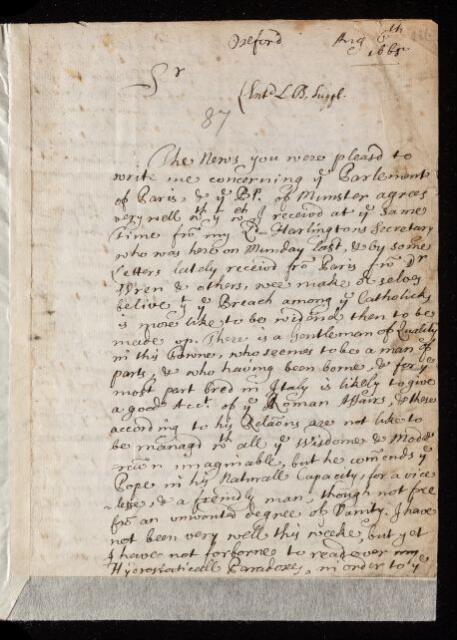 Oxford Aug 6th
1665
Sr
(Entd L. B. Suppl.
87
The News you were pleasd to
write me concerning ye Parlement
of Paris, & ye Bp. of Munster agrees
very well wth wt I receivd at ye same
time frō my Ld Harlingtons Secretary
who was here on Munday last, & by some
Letters lately receivd frō Paris frō Dr
Wren & others, wee make or selves
belive yt ye Breach among ye Catholicks
is more like to be widend then to be
made up. There is a Gentleman of Quality
in this towne, who seemes to be a man of
parts, & who having been borne, & for ye
most part bred in Italy is likely to give
a good Acct. of ye Roman Affairs, & these
according to his Relaōns are not like to
be managd wth all ye Wisdome & Mode
racōn imaginable, but he com̄ends ye
Pope in his Naturall Capacity, for a vice
lesse, & a friendly man, though not free
frō an unwonted degree of Vanity. I have
not been very well this weeke, but yet
I have not forborne to read over my
Hydrostaticall Paradoxes, in order to ye